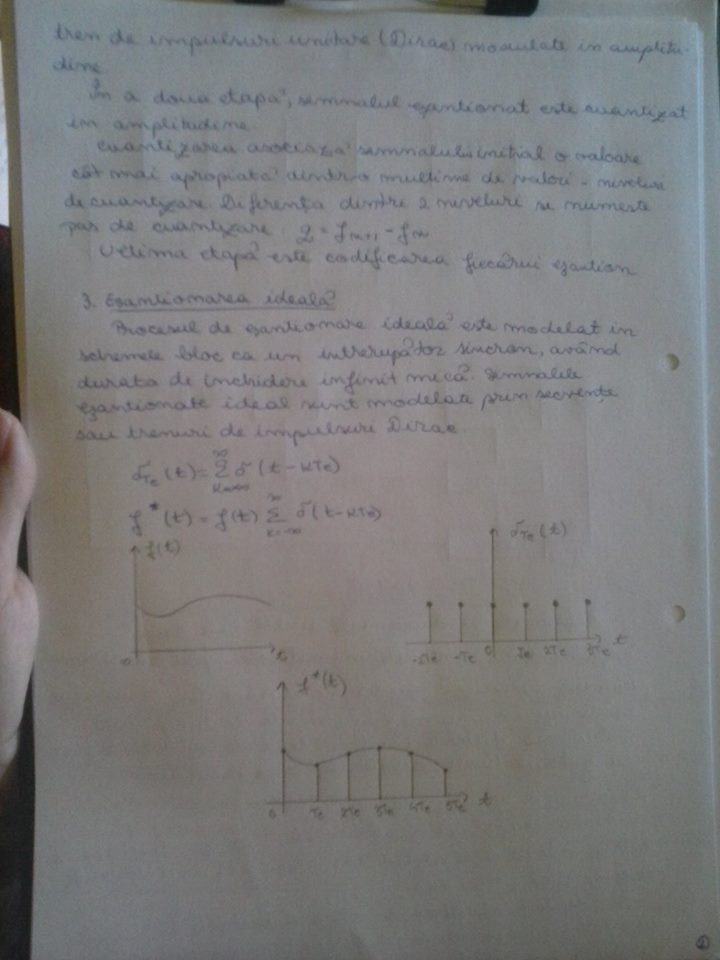 tren de impulsuri unitare (Dirac) modulate in amplitu-
dine.
În a doua etapă, semnalul eșantionat este cuantizat
in amplitudine.
Cuantizarea asociază semnalului initial o valoare
cât mai apropiată dintr-o multime de valori - niveluri
de cuantizare. Diferența dintre 2 niveluri se numeste
pas de cuantizare : q = f_{m+1} - f_m
Ultima etapă este codificarea fiecărui eșantion
3. Eșantionarea ideală
Procesul de eșantionare ideală este modelat in
schemele bloc ca un intrerupător sincron, având
durata de inchidere infinit mică. Semnalele
eșantionate ideal sunt modelate prin secvențe
sau trenuri de impulsuri Dirac.
δ_{Te}(t) = Σ_{k=-∞}^{∞} δ(t-kTe)
f*(t) = f(t) Σ_{k=-∞}^{∞} δ(t-kTe)
f(t)
0 t
δ_{Te}(t)
-2Te -Te 0 Te 2Te 3Te t
f*(t)
0 Te 2Te 3Te 4Te 5Te t
2